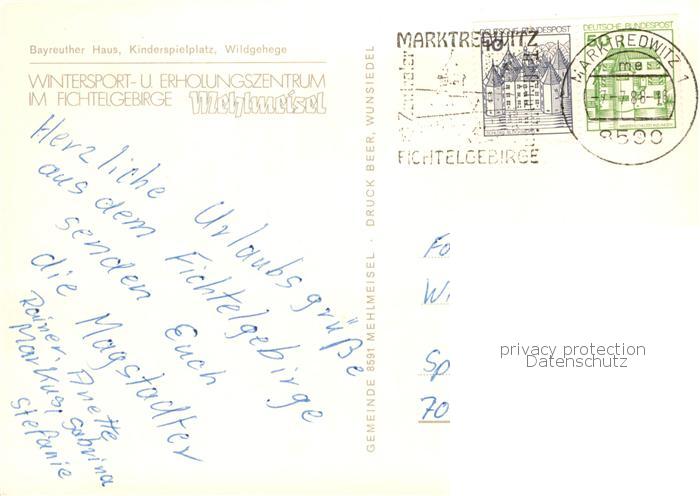 Bayreuther Haus, Kinderspielplatz, Wildgehege
WINTERSPORT- U. ERHOLUNGSZENTRUM
IM FICHTELGEBIRGE Mehlmeisel
Herzliche Urlaubsgrüße
aus dem Fichtelgebirge
senden Euch
die Magstadter
Rainer, Anette
Markus, Sabrina
Stefanie
GEMEINDE 8591 MEHLMEISEL · DRUCK BEER, WUNSIEDEL
MARKTREDWITZ
FICHTELGEBIRGE
DEUTSCHE BUNDESPOST
10
DEUTSCHE BUNDESPOST
50
MARKTREDWITZ 1
me
8590
Fo
Wi
Sp
70
privacy protection
Datenschutz